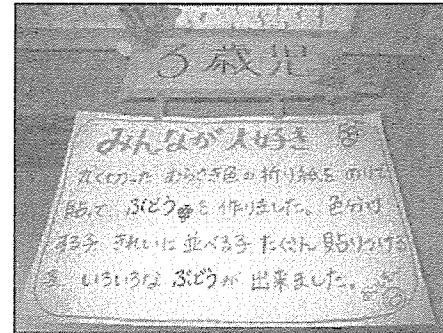 3歳児
みんなが大好き
丸く切った むらさき色の折り紙を のりで
貼って、ぶどうを作りました。色分け
する子 きれいに並べる子 たくさん貼りつける
子 いろいろな ぶどうが 出来ました。